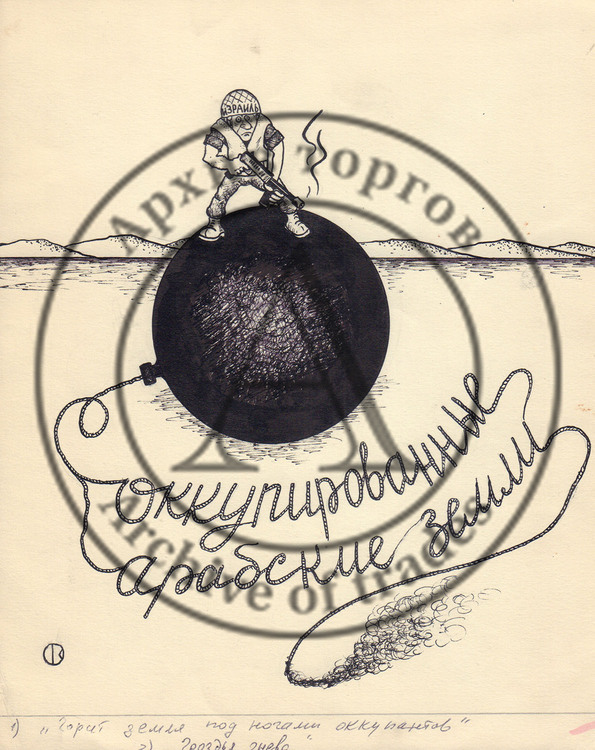 ИЗРАИЛЬ
Архив торгов
оккупированные
арабские земли
Archive of trades
1) „Горит земля под ногами оккупантов"
2) гнева"